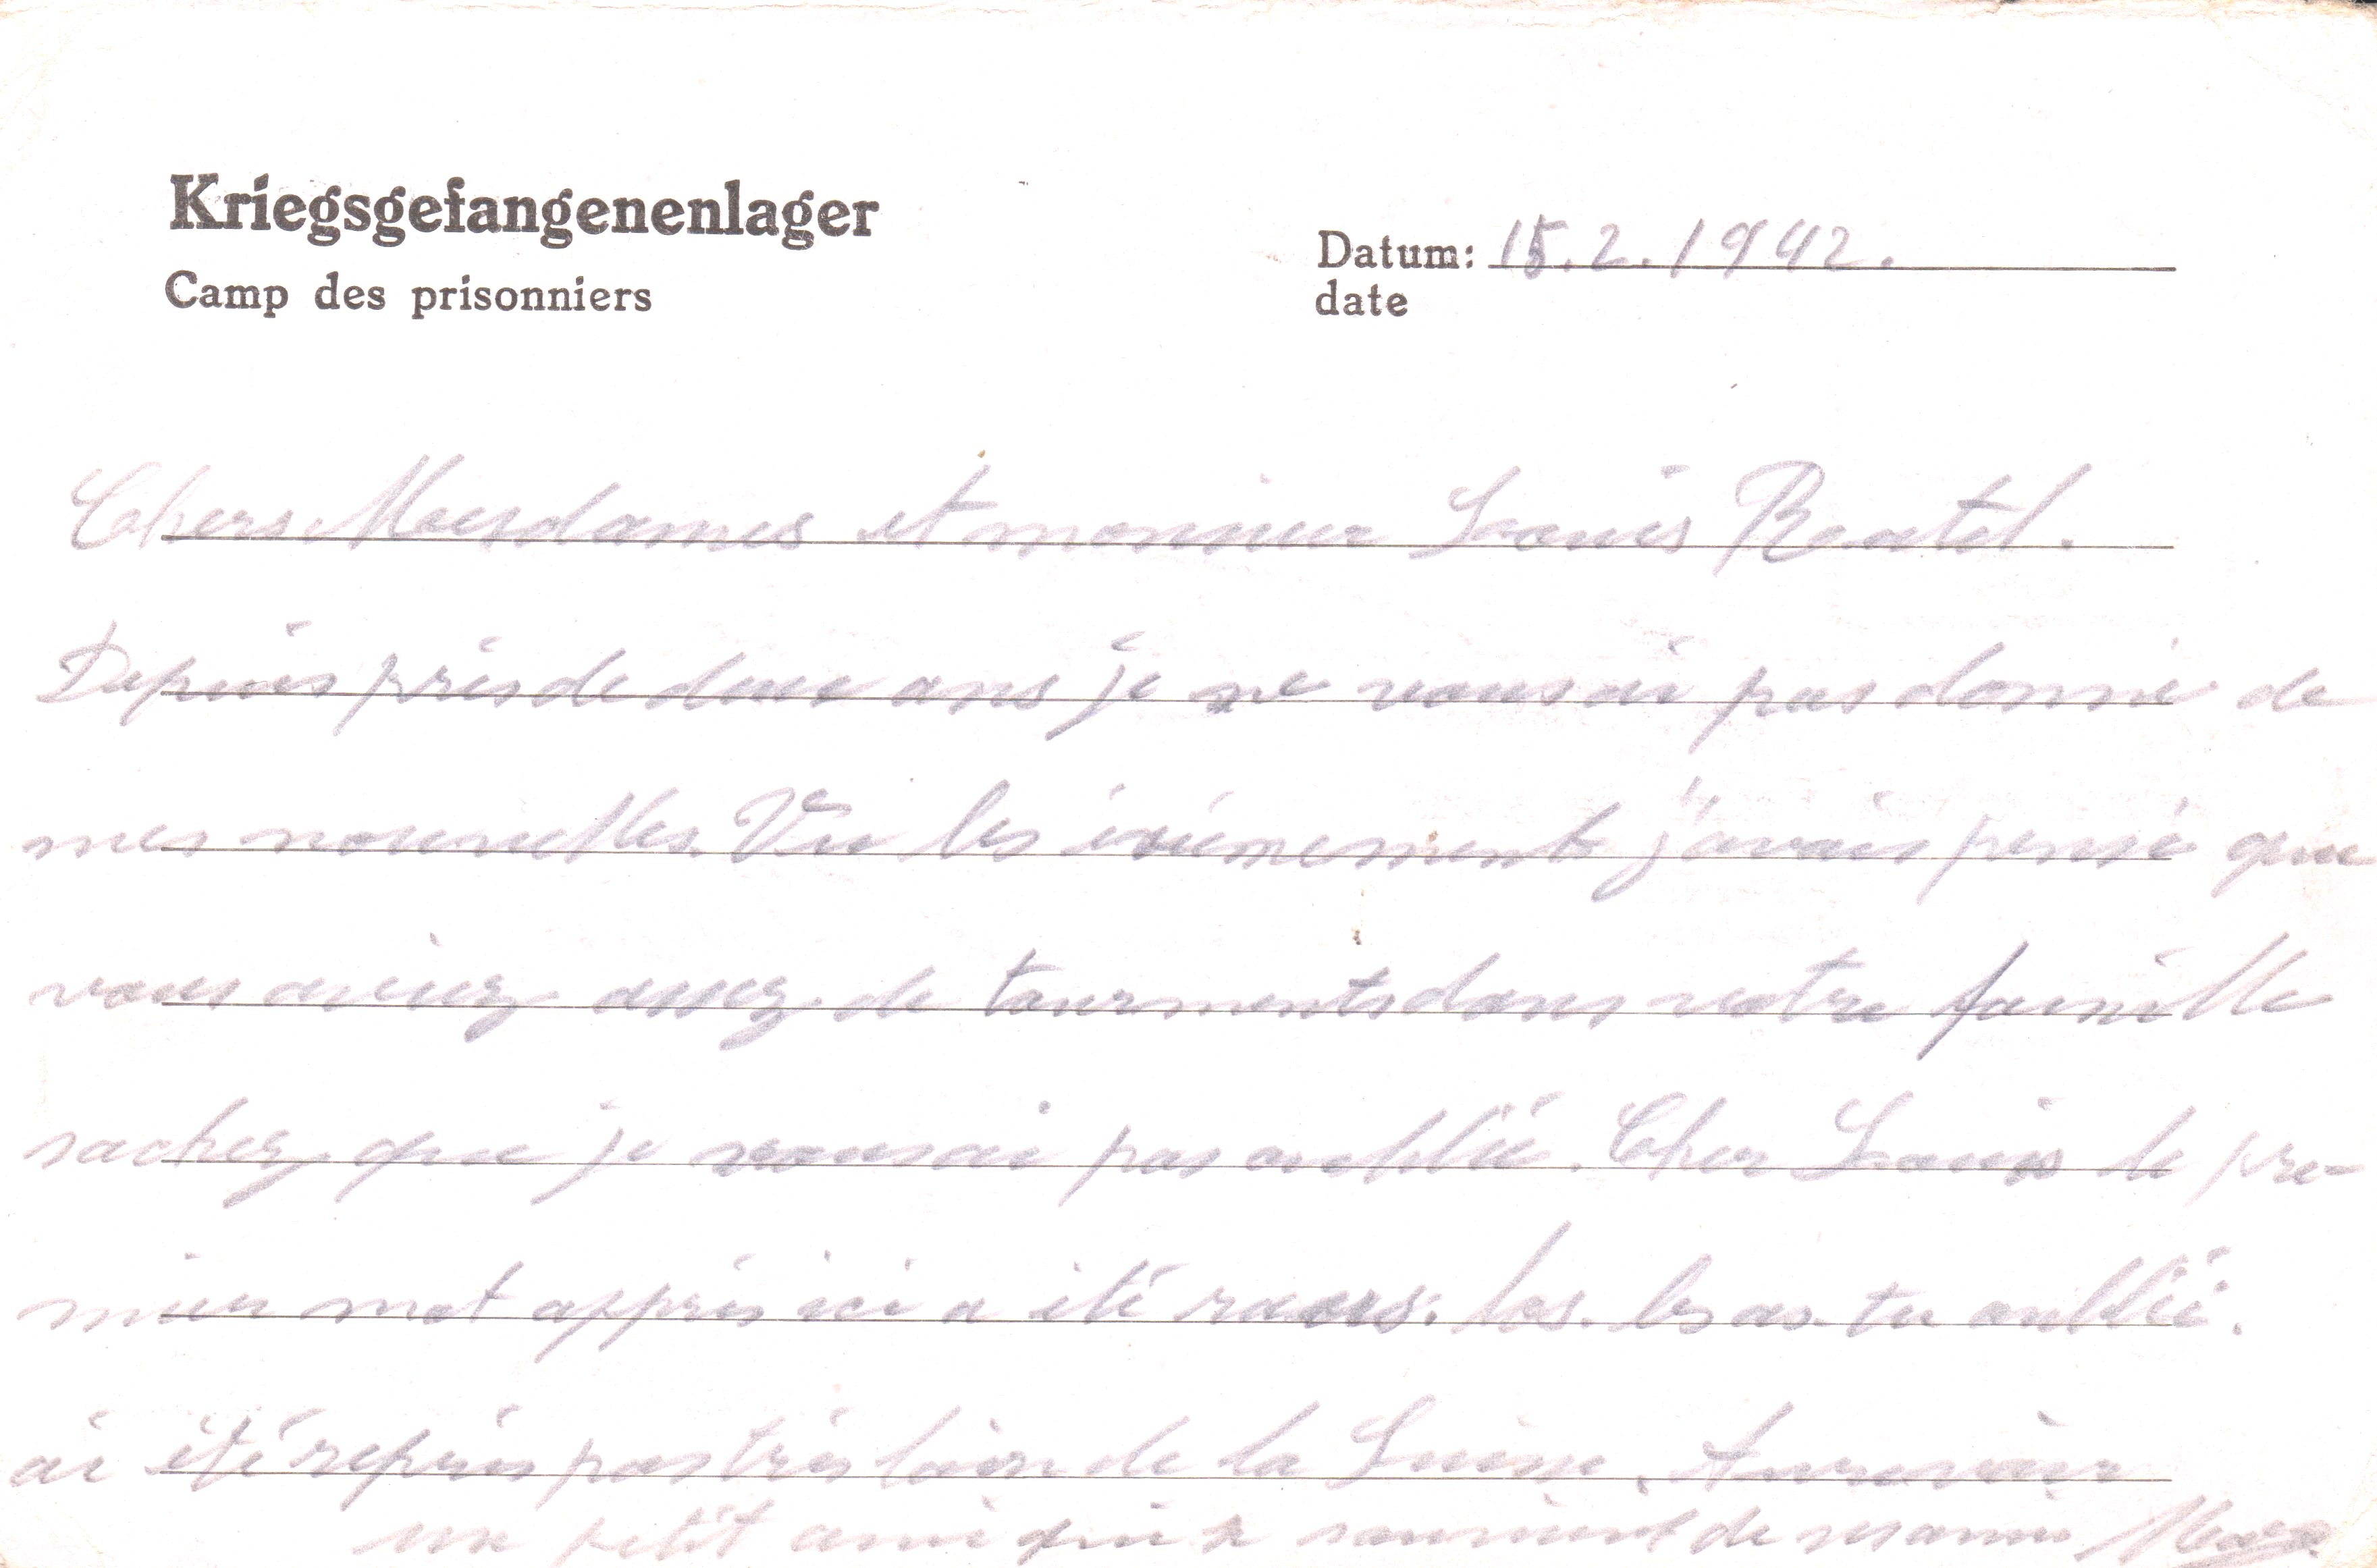 Kriegsgefangenenlager
Camp des prisonniers
Datum: 15.2.1942.
date
Chers Mesdames et monsieur Louis
Depuis près de deux ans je ne vous ai pas donné de
mes nouvelles. Vu les événements j'avais pensé que
vous aviez assez de tourments dans votre famille
sachez que je vous ai pas oublié. Cher Louis le pre-
mier mot appris ici a été raous. los. les as-tu oublié.
ai été repris pas très loin de la Suisse. Aurevoir
un petit ami qui se souvient de ses amis